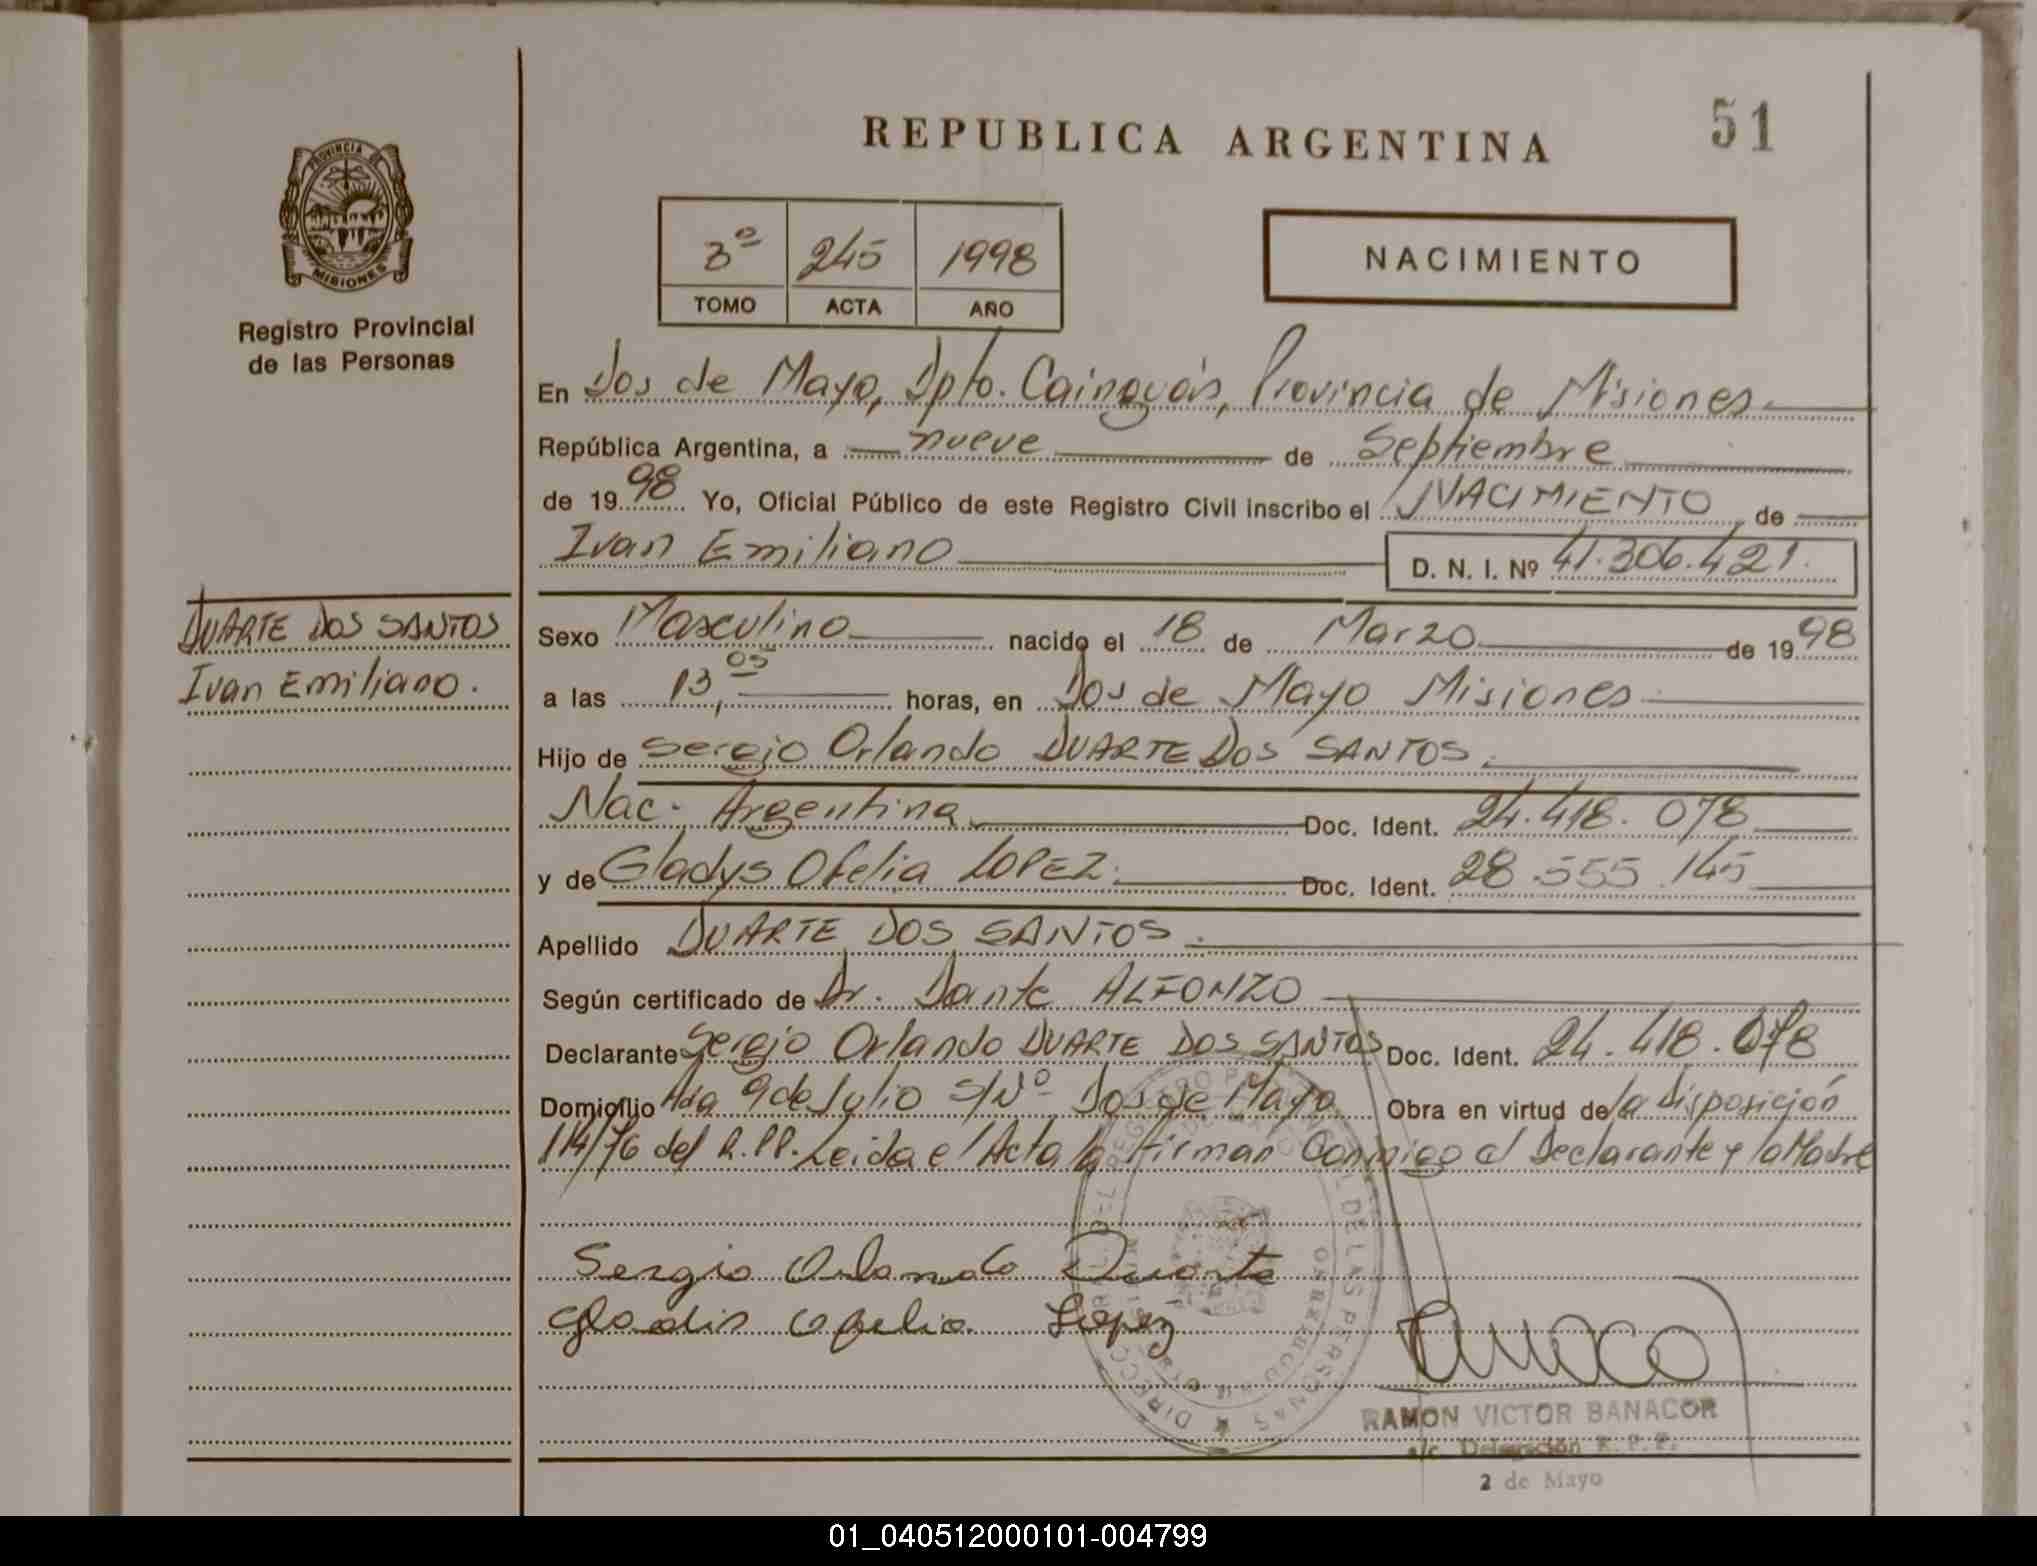 REPUBLICA ARGENTINA
51
PROVINCIA DE
MISIONES
Registro Provincial
de las Personas
3º 245 1998
TOMO ACTA AÑO
NACIMIENTO
En Dos de Mayo, Dpto. Cainguás, Provincia de Misiones
República Argentina, a nueve de Septiembre
de 1998 Yo, Oficial Público de este Registro Civil inscribo el NACIMIENTO de
Ivan Emiliano D. N. I. Nº 41.306.421.
DUARTE DOS SANTOS
Ivan Emiliano.
Sexo Masculino nacido el 18 de Marzo de 1998
a las 13,05 horas, en Dos de Mayo Misiones
Hijo de Sergio Orlando DUARTE DOS SANTOS.
Nac. Argentina Doc. Ident. 24.418.078
y de Gladys Ofelia LOPEZ. Doc. Ident. 28.555.145
Apellido DUARTE DOS SANTOS.
Según certificado de Dr. Dante ALFONZO
Declarante Sergio Orlando DUARTE DOS SANTOS Doc. Ident. 24.418.078
Domicilio Avda 9 de Julio S/Nº Dos de Mayo Obra en virtud de la disposición
114/76 del R.PP. Leida el Acta la firman Conmigo el Declarante y la Madre
Sergio Orlando Duarte
Gladis Ofelia Lopez
RAMON VICTOR BANACOR
a/c. Delegación R. P. P.
2 de Mayo
01_040512000101-004799